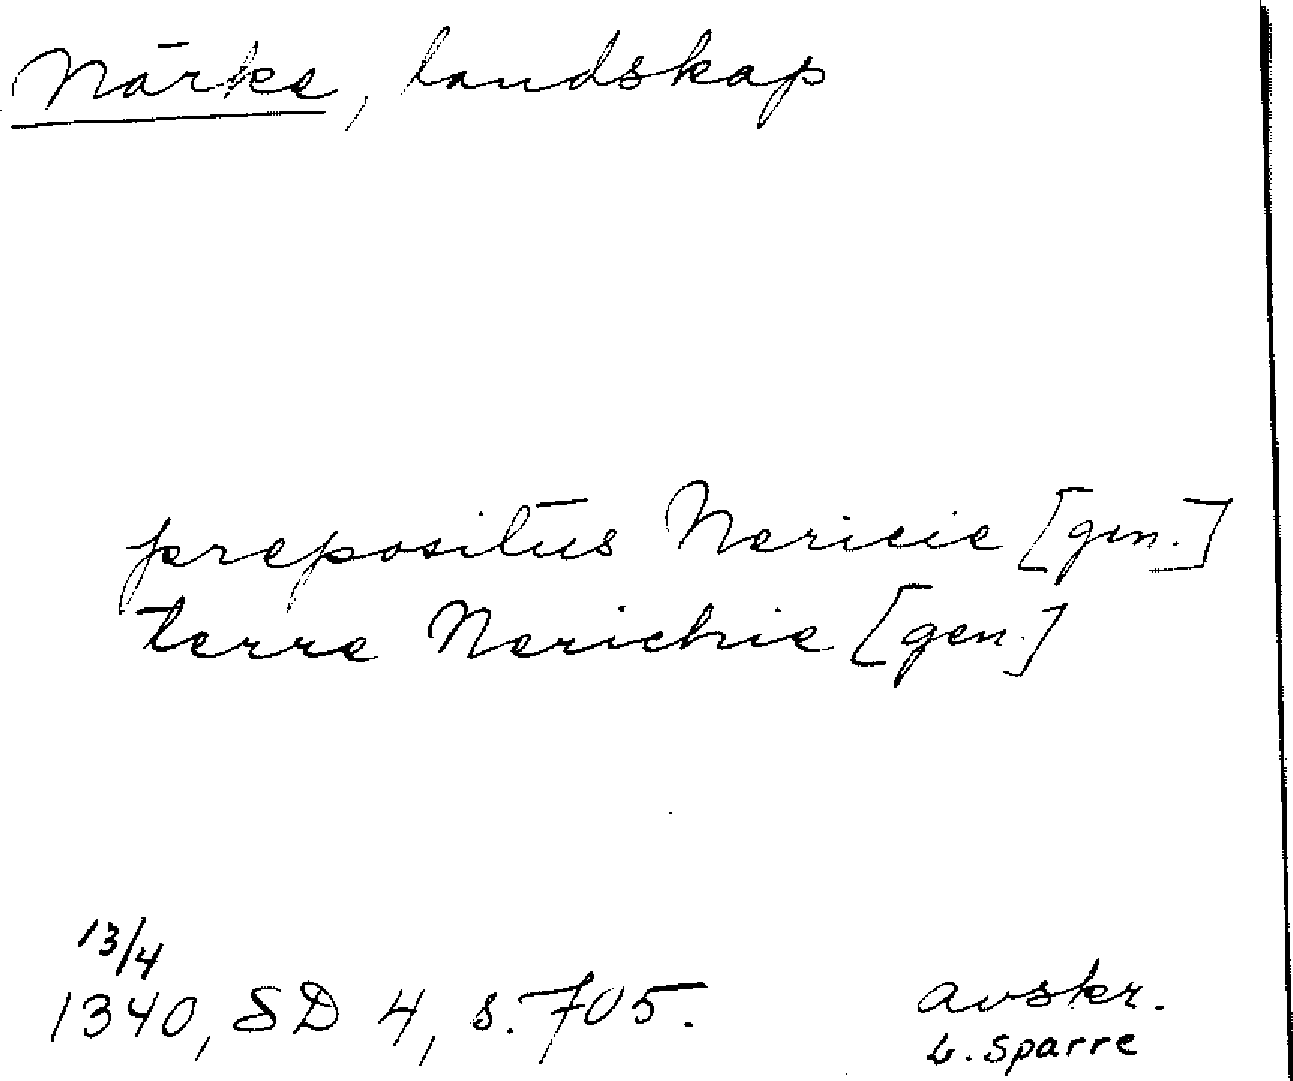 Närke, landskap
prepositus Nericie [gen.]
terre Nerichie [gen.]
13/4
1340, SD 4, s. 705.
avskr.
L. Sparre